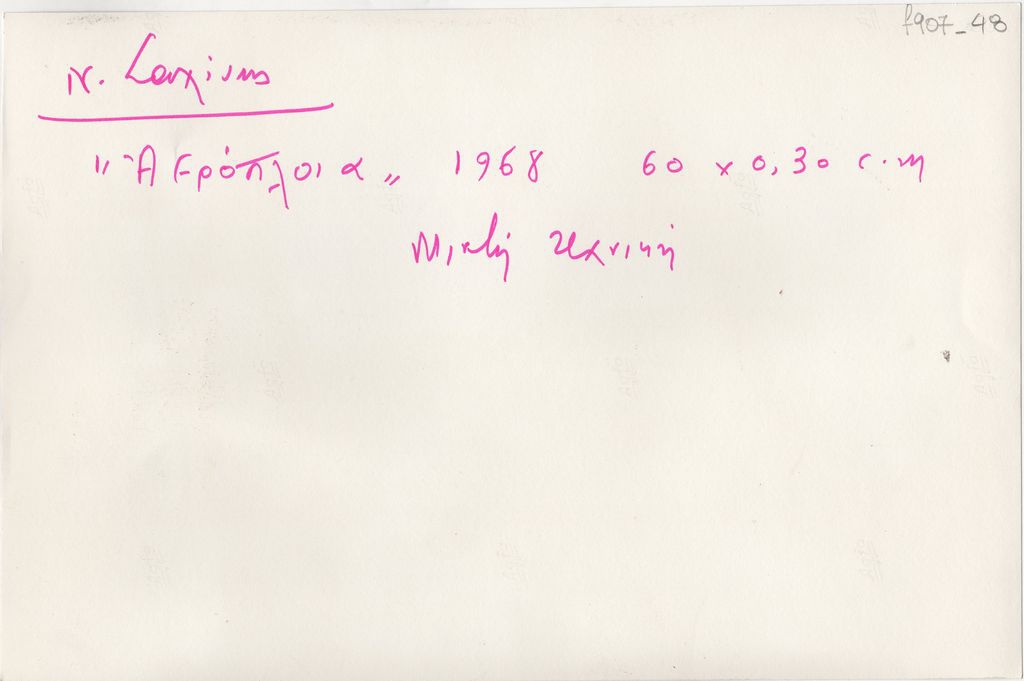 f907_48
Ν. Σαχίνης
"Ἀερόπλοια„ 1968 60 x 0,30 c.m
Μικτή τεχνική